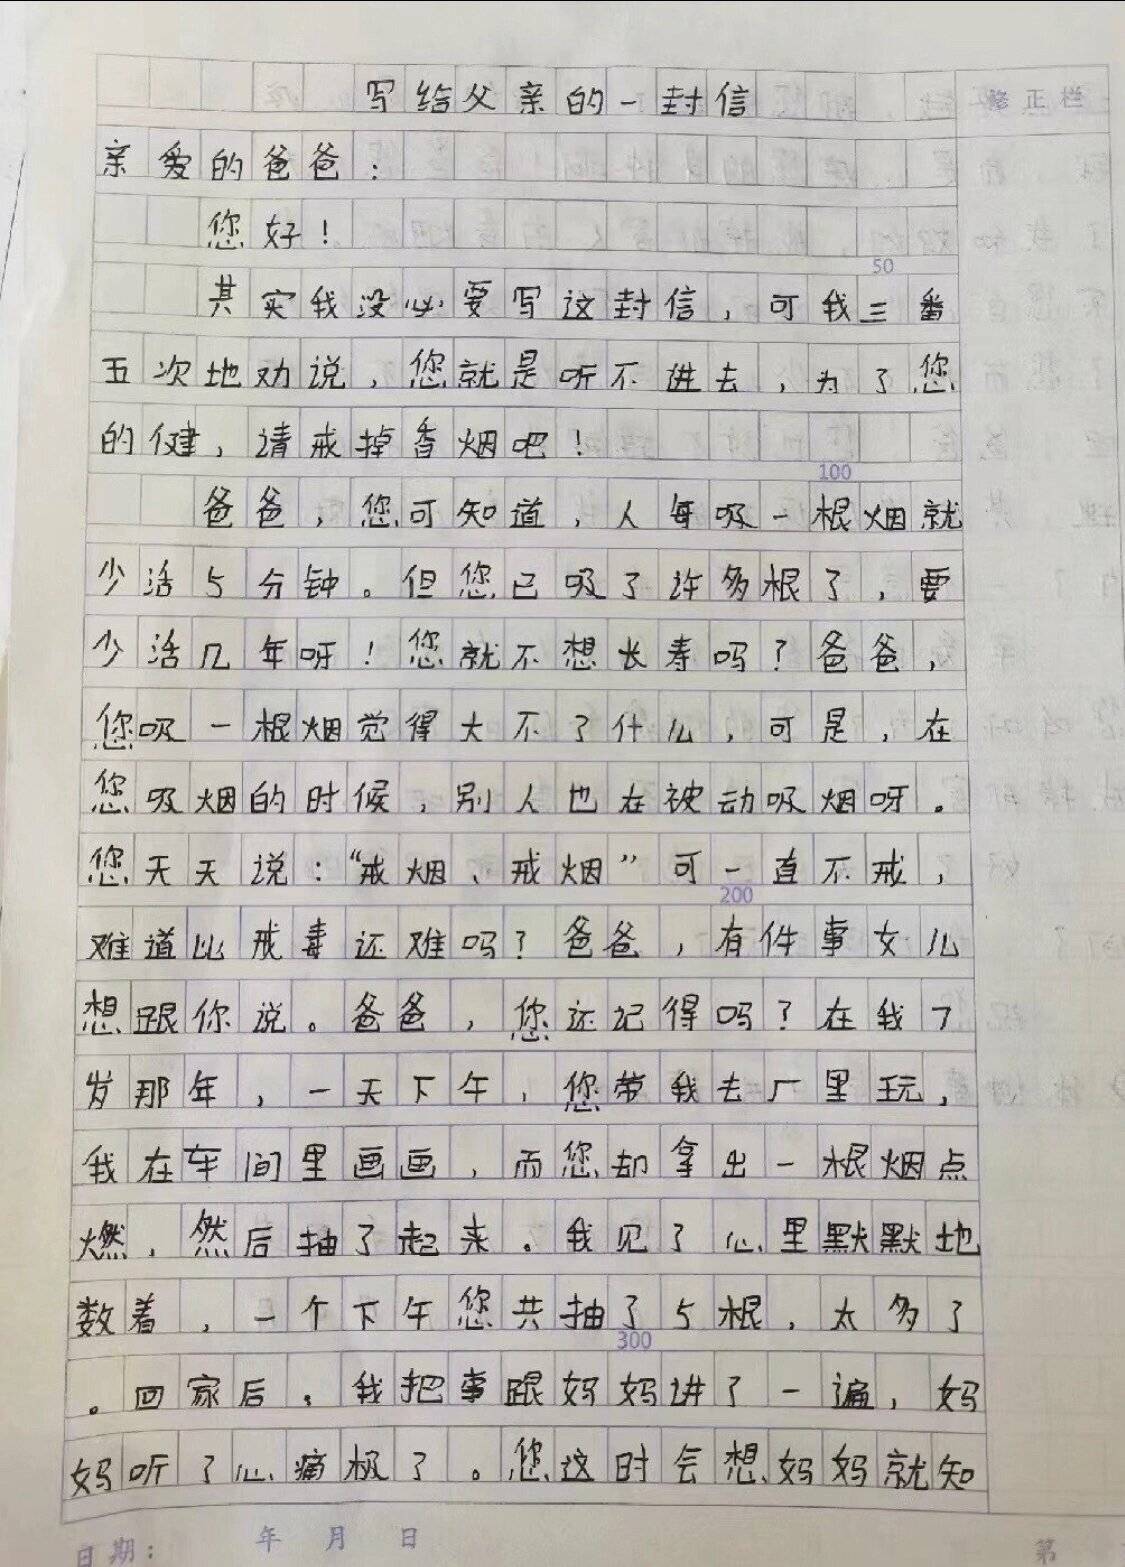 写给父亲的一封信
修正栏
亲爱的爸爸：
您好！
50
其实我没必要写这封信，可我三番
五次地劝说，您就是听不进去，为了您
的健，请戒掉香烟吧！
100
爸爸，您可知道，人每吸一根烟就
少活5分钟。但您已吸了许多根了，要
少活几年呀！您就不想长寿吗？爸爸，
您吸一根烟觉得大不了什么，可是，在
您吸烟的时候，别人也在被动吸烟呀。
您天天说：“戒烟、戒烟”可一直不戒，
200
难道比戒毒还难吗？爸爸，有件事女儿
想跟你说。爸爸，您还记得吗？在我7
岁那年，一天下午，您带我去厂里玩，
我在车间里画画，而您却拿出一根烟点
燃，然后抽了起来。我见了心里默默地
数着，一个下午您共抽了5根，太多了
300
。回家后，我把事跟妈妈讲了一遍，妈
妈听了心痛极了。您这时会想妈妈就知
日期：　年　月　日
第